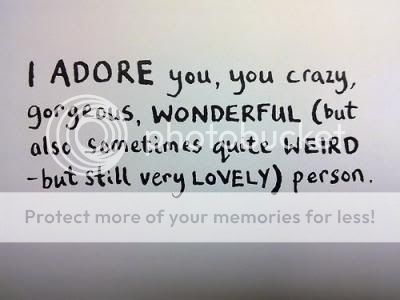 I ADORE you, you crazy,
gorgeous, WONDERFUL (but
also sometimes quite WEIRD
-but still very LOVELY) person.
photobucket
Protect more of your memories for less!